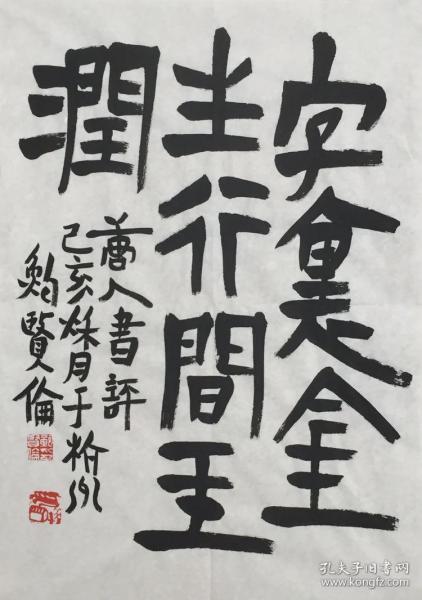 字裏金
生行間玉
潤
人書評
己亥秋月于
鮑賢倫
孔夫子旧书网
www.kongfz.com